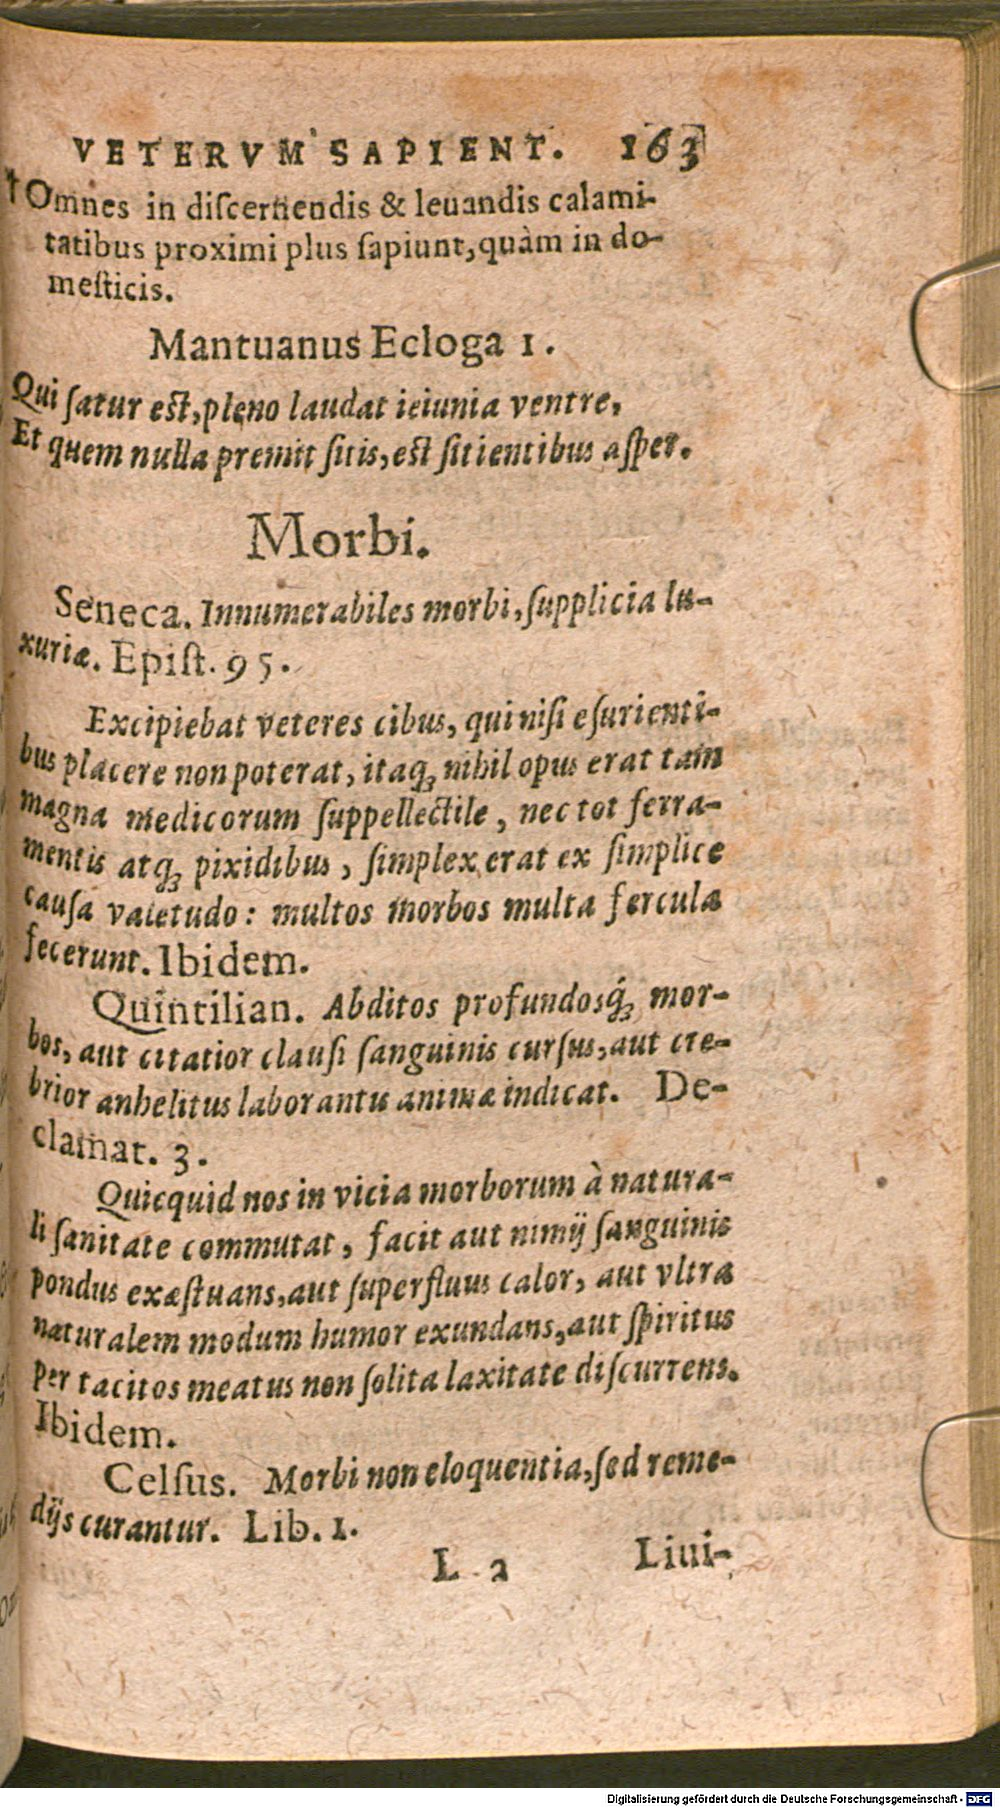 VETERVM SAPIENT. 163
†Omnes in diſcernendis & leuandis calami-
tatibus proximi plus ſapiunt, quàm in do-
meſticis.
Mantuanus Ecloga 1.
Qui ſatur eſt, pleno laudat ieiunia ventre,
Et quem nulla premit ſitis, eſt ſitientibus aſper.
Morbi.
Seneca. Innumerabiles morbi, ſupplicia lu-
xuriæ. Epiſt. 95.
Excipiebat veteres cibus, qui niſi eſurienti-
bus placere non poterat, itaq; nihil opus erat tam
magna medicorum ſuppellectile, nec tot ferra-
mentis atq; pixidibus, ſimplex erat ex ſimplice
cauſa valetudo: multos morbos multa fercula
fecerunt. Ibidem.
Quintilian. Abditos profundosq́; mor-
bos, aut citatior clauſi ſanguinis curſus, aut cre-
brior anhelitus laborantu animæ indicat. De-
clamat. 3.
Quicquid nos in vicia morborum à natura-
li ſanitate commutat, facit aut nimij ſanguinis
pondus exæſtuans, aut ſuperfluus calor, aut vltra
naturalem modum humor exundans, aut ſpiritus
per tacitos meatus non ſolita laxitate diſcurrens.
Ibidem.
Celſus. Morbi non eloquentia, ſed reme-
dijs curantur. Lib. 1.
L 2 Liui-
Digitalisierung gefördert durch die Deutsche Forschungsgemeinschaft - DFG